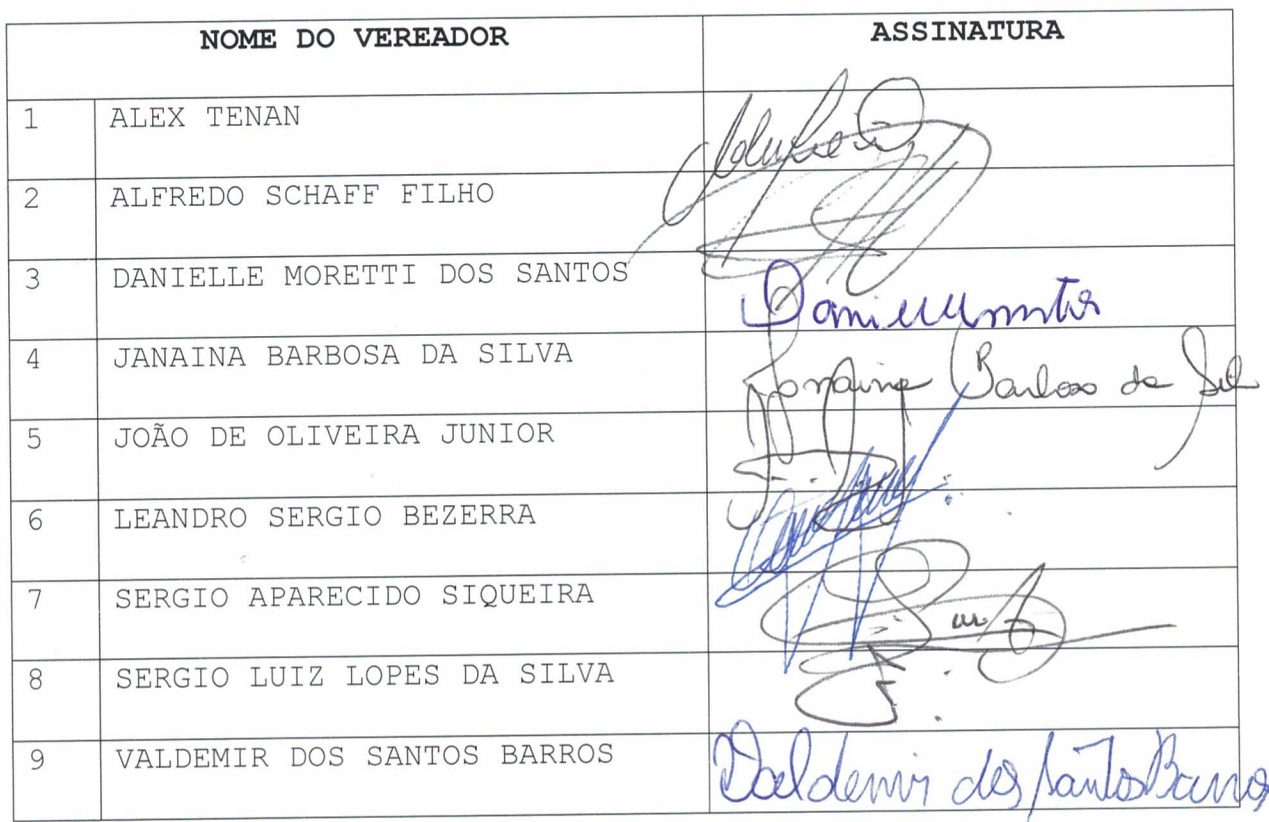 NOME DO VEREADOR ASSINATURA
1 ALEX TENAN
2 ALFREDO SCHAFF FILHO
3 DANIELLE MORETTI DOS SANTOS
4 JANAINA BARBOSA DA SILVA Janaina Barbosa da Sil
5 JOÃO DE OLIVEIRA JUNIOR
6 LEANDRO SERGIO BEZERRA
7 SERGIO APARECIDO SIQUEIRA
8 SERGIO LUIZ LOPES DA SILVA
9 VALDEMIR DOS SANTOS BARROS Valdemir dos Santos Barros